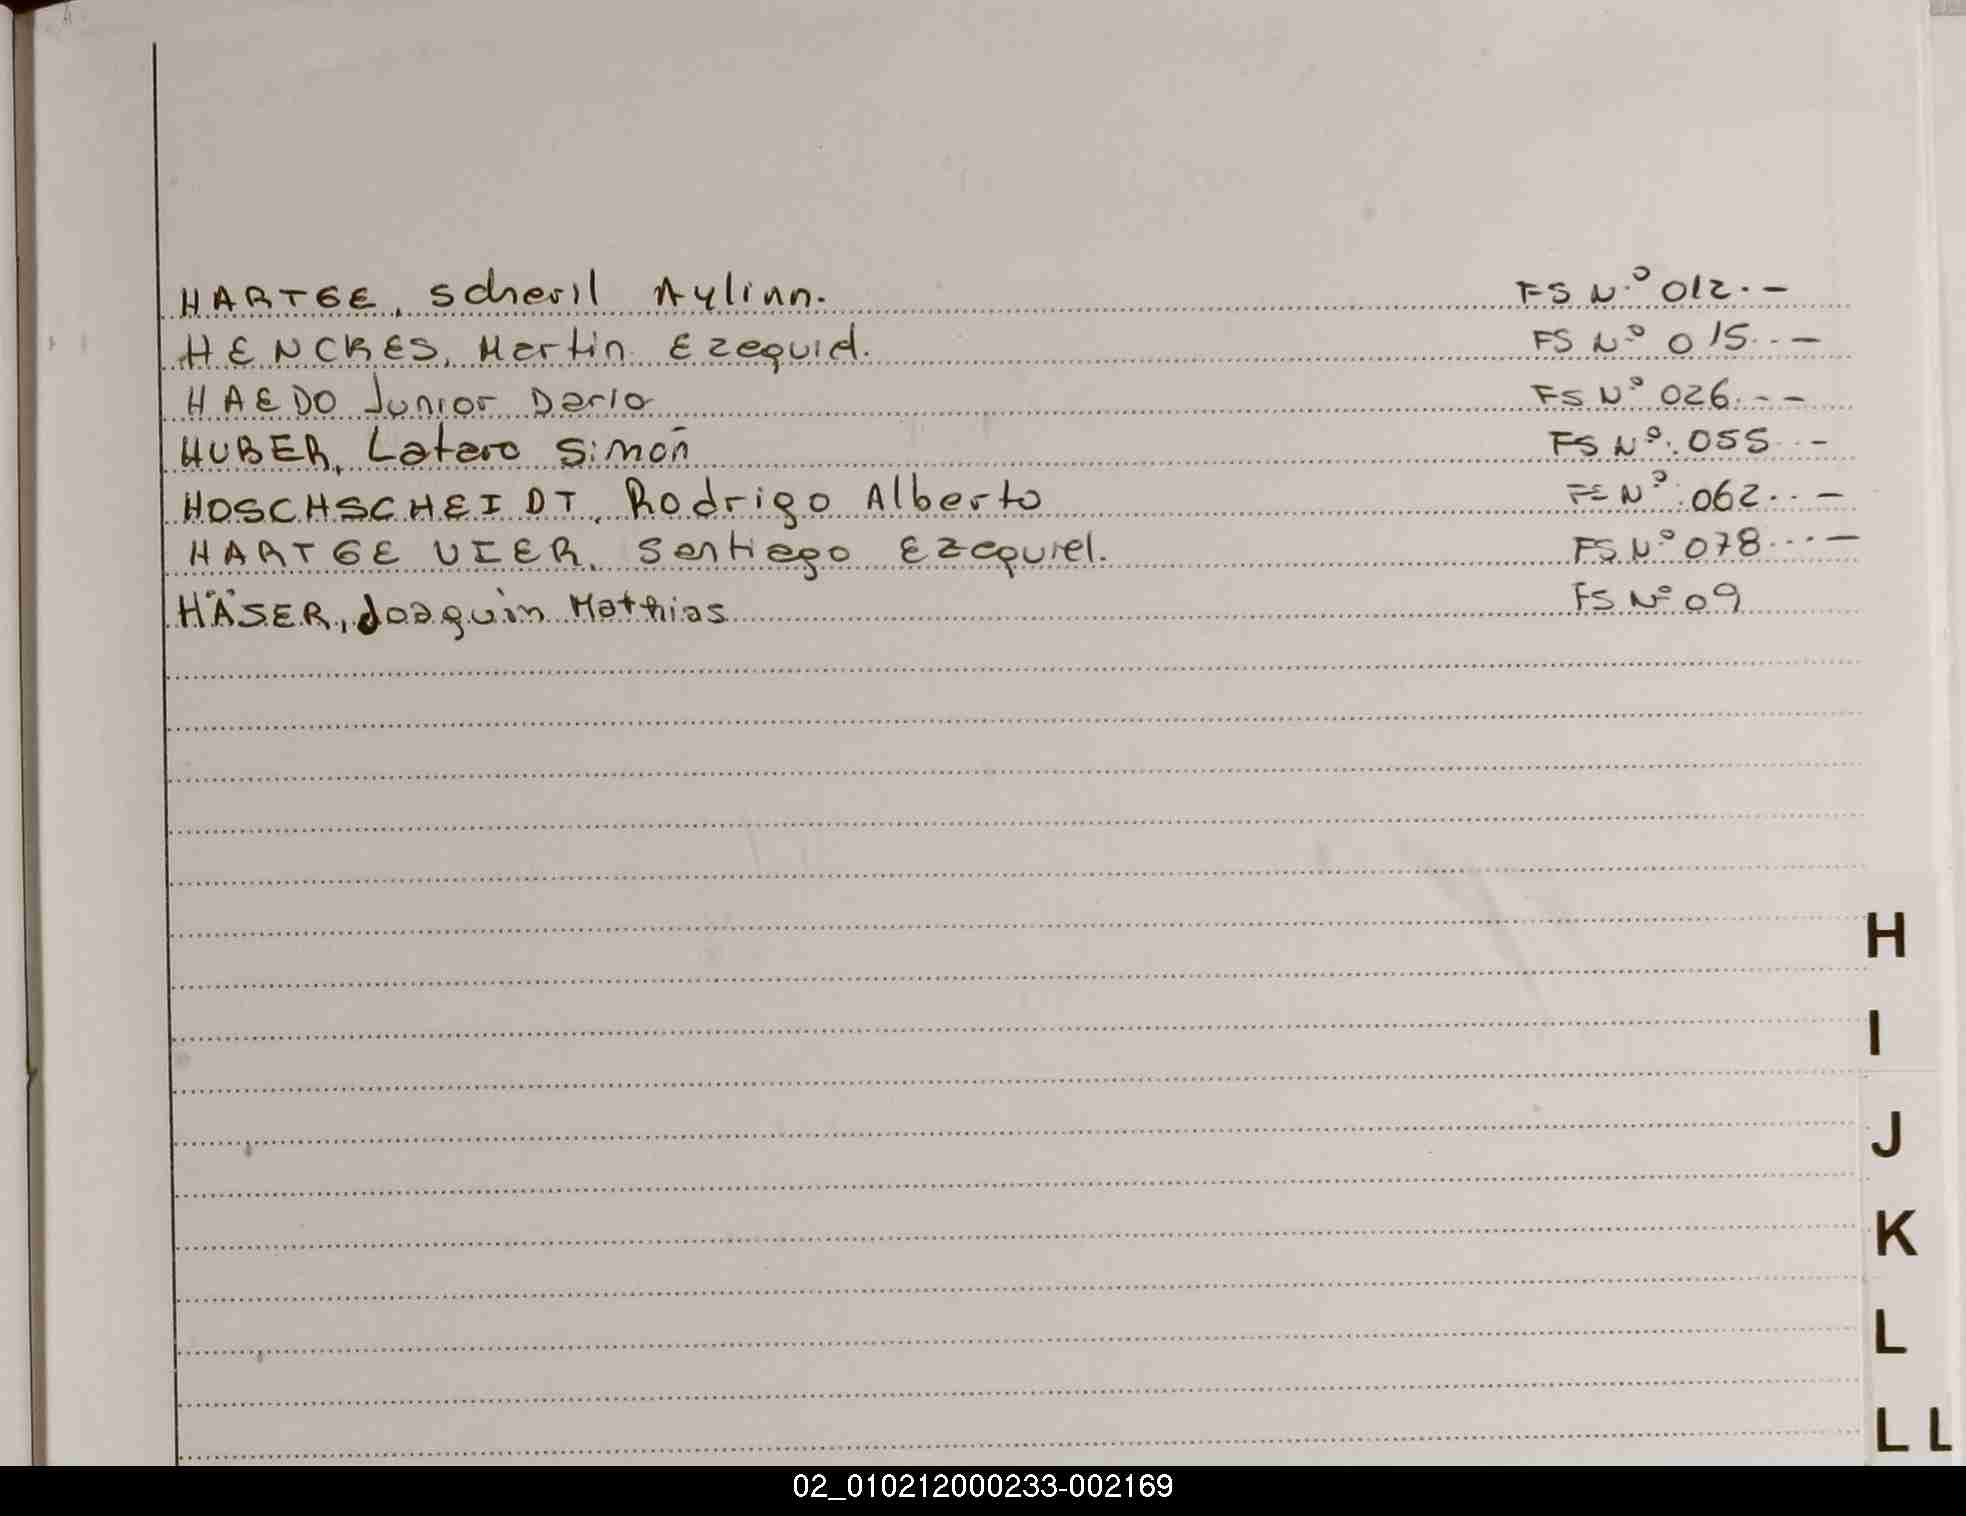 HARTGE, Scheril Aylinn. FS N.º 012.-
HENCKES, Martin Ezequiel. FS Nº 015..-
HAEDO Junior Dario FS Nº 026.--
HUBER, Lataro Simón FS Nº. 055..-
HOSCHSCHEIDT, Rodrigo Alberto FS Nº. 062..-
HARTGE VIER, Santiago Ezequiel. FS Nº 078...-
HÄSER, Joaquin Mathias FS Nº 09
H
I
J
K
L
LL
02_010212000233-002169